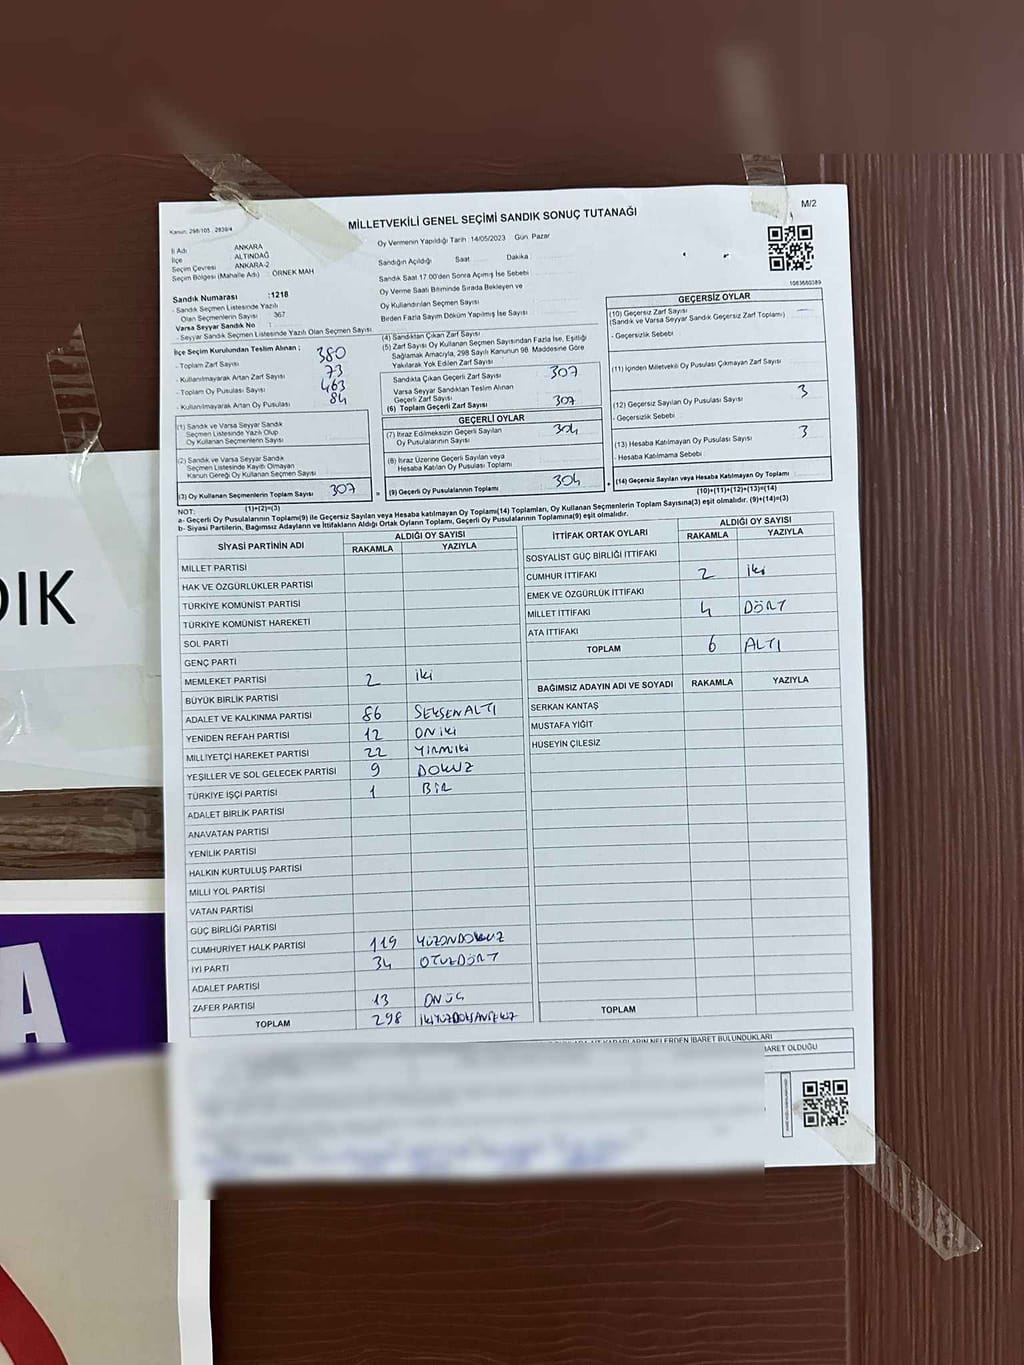 MİLLETVEKİLİ GENEL SEÇİMİ SANDIK SONUÇ TUTANAĞI
M/2
Kanun: 298/105 , 2839/4
İl Adı ANKARA
İlçe ALTINDAĞ
Seçim Çevresi ANKARA-2
Seçim Bölgesi (Mahalle Adı) : ÖRNEK MAH
Sandık Numarası :1218
- Sandık Seçmen Listesinde Yazılı
Olan Seçmenlerin Sayısı 367
Varsa Seyyar Sandık No :
- Seyyar Sandık Seçmen Listesinde Yazılı Olan Seçmen Sayısı
Oy Vermenin Yapıldığı Tarih :14/05/2023 Gün: Pazar
Sandığın Açıldığı Saat Dakika
Sandık Saat 17:00'den Sonra Açılmış İse Sebebi
Oy Verme Saati Bitiminde Sırada Bekleyen ve
Oy Kullandırılan Seçmen Sayısı
Birden Fazla Sayım Döküm Yapılmış İse Sayısı
1083680389
İlçe Seçim Kurulundan Teslim Alınan ;
- Toplam Zarf Sayısı 380
- Kullanılmayarak Artan Zarf Sayısı 73
- Toplam Oy Pusulası Sayısı 463
- Kullanılmayarak Artan Oy Pusulası 84
(1) Sandık ve Varsa Seyyar Sandık
Seçmen Listesinde Yazılı Olup
Oy Kullanan Seçmenlerin Sayısı
(2) Sandık ve Varsa Seyyar Sandık
Seçmen Listesinde Kayıtlı Olmayan
Kanun Gereği Oy Kullanan Seçmen Sayısı
(3) Oy Kullanan Seçmenlerin Toplam Sayısı 307
(1)+(2)=(3)
(4) Sandıktan Çıkan Zarf Sayısı
(5) Zarf Sayısı Oy Kullanan Seçmen Sayısından Fazla İse, Eşitliği
Sağlamak Amacıyla, 298 Sayılı Kanunun 98. Maddesine Göre
Yakılarak Yok Edilen Zarf Sayısı
Sandıkta Çıkan Geçerli Zarf Sayısı 307
Varsa Seyyar Sandıktan Teslim Alınan
Geçerli Zarf Sayısı
(6) Toplam Geçerli Zarf Sayısı 307
GEÇERLİ OYLAR
(7) İtiraz Edilmeksizin Geçerli Sayılan
Oy Pusulalarının Sayısı 304
(8) İtiraz Üzerine Geçerli Sayılan veya
Hesaba Katılan Oy Pusulası Toplamı
(9) Geçerli Oy Pusulalarının Toplamı 304
GEÇERSİZ OYLAR
(10) Geçersiz Zarf Sayısı
(Sandık ve Varsa Seyyar Sandık Geçersiz Zarf Toplamı)
- Geçersizlik Sebebi
(11) İçinden Milletvekili Oy Pusulası Çıkmayan Zarf Sayısı
(12) Geçersiz Sayılan Oy Pusulası Sayısı 3
- Geçersizlik Sebebi
(13) Hesaba Katılmayan Oy Pusulası Sayısı 3
- Hesaba Katılmama Sebebi
(14) Geçersiz Sayılan veya Hesaba Katılmayan Oy Toplamı
(10)+(11)+(12)+(13)=(14)
NOT:
a- Geçerli Oy Pusulaları Toplamı(9) ile Geçersiz Sayılan veya Hesaba katılmayan Oy Toplamı(14) Toplamları, Oy Kullanan Seçmenlerin Toplam Sayısına(3) eşit olmalıdır. (9)+(14)=(3)
b- Siyasi Partilerin, Bağımsız Adayların ve İttifakların Aldığı Ortak Oyların Toplamı, Geçerli Oy Pusulalarının Toplamına(9) eşit olmalıdır.
SİYASİ PARTİNİN ADI ALDIĞI OY SAYISI
RAKAMLA YAZIYLA
MİLLET PARTİSİ
HAK VE ÖZGÜRLÜKLER PARTİSİ
TÜRKİYE KOMÜNİST PARTİSİ
TÜRKİYE KOMÜNİST HAREKETİ
SOL PARTİ
GENÇ PARTİ
MEMLEKET PARTİSİ 2 iki
BÜYÜK BİRLİK PARTİSİ
ADALET VE KALKINMA PARTİSİ 86 SEKSENALTI
YENİDEN REFAH PARTİSİ 12 ONİKİ
MİLLİYETÇİ HAREKET PARTİSİ 22 YİRMİKİ
YEŞİLLER VE SOL GELECEK PARTİSİ 9 DOKUZ
TÜRKİYE İŞÇİ PARTİSİ 1 BİR
ADALET BİRLİK PARTİSİ
ANAVATAN PARTİSİ
YENİLİK PARTİSİ
HALKIN KURTULUŞ PARTİSİ
MİLLİ YOL PARTİSİ
VATAN PARTİSİ
GÜÇ BİRLİĞİ PARTİSİ
CUMHURİYET HALK PARTİSİ 119 YÜZONDOKUZ
İYİ PARTİ 34 OTUZDÖRT
ADALET PARTİSİ
ZAFER PARTİSİ 13 ONÜÇ
TOPLAM 298 İKİYÜZDOKSANSEKİZ
İTTİFAK ORTAK OYLARI ALDIĞI OY SAYISI
RAKAMLA YAZIYLA
SOSYALİST GÜÇ BİRLİĞİ İTTİFAKI
CUMHUR İTTİFAKI 2 iki
EMEK VE ÖZGÜRLÜK İTTİFAKI
MİLLET İTTİFAKI 4 DÖRT
ATA İTTİFAKI
TOPLAM 6 ALTI
BAĞIMSIZ ADAYIN ADI VE SOYADI RAKAMLA YAZIYLA
SERKAN KANTAŞ
MUSTAFA YİĞİT
HÜSEYİN ÇİLESİZ
TOPLAM
NELERDEN İBARET BULUNDUKLARI
BARET OLDUĞU
DIK
A